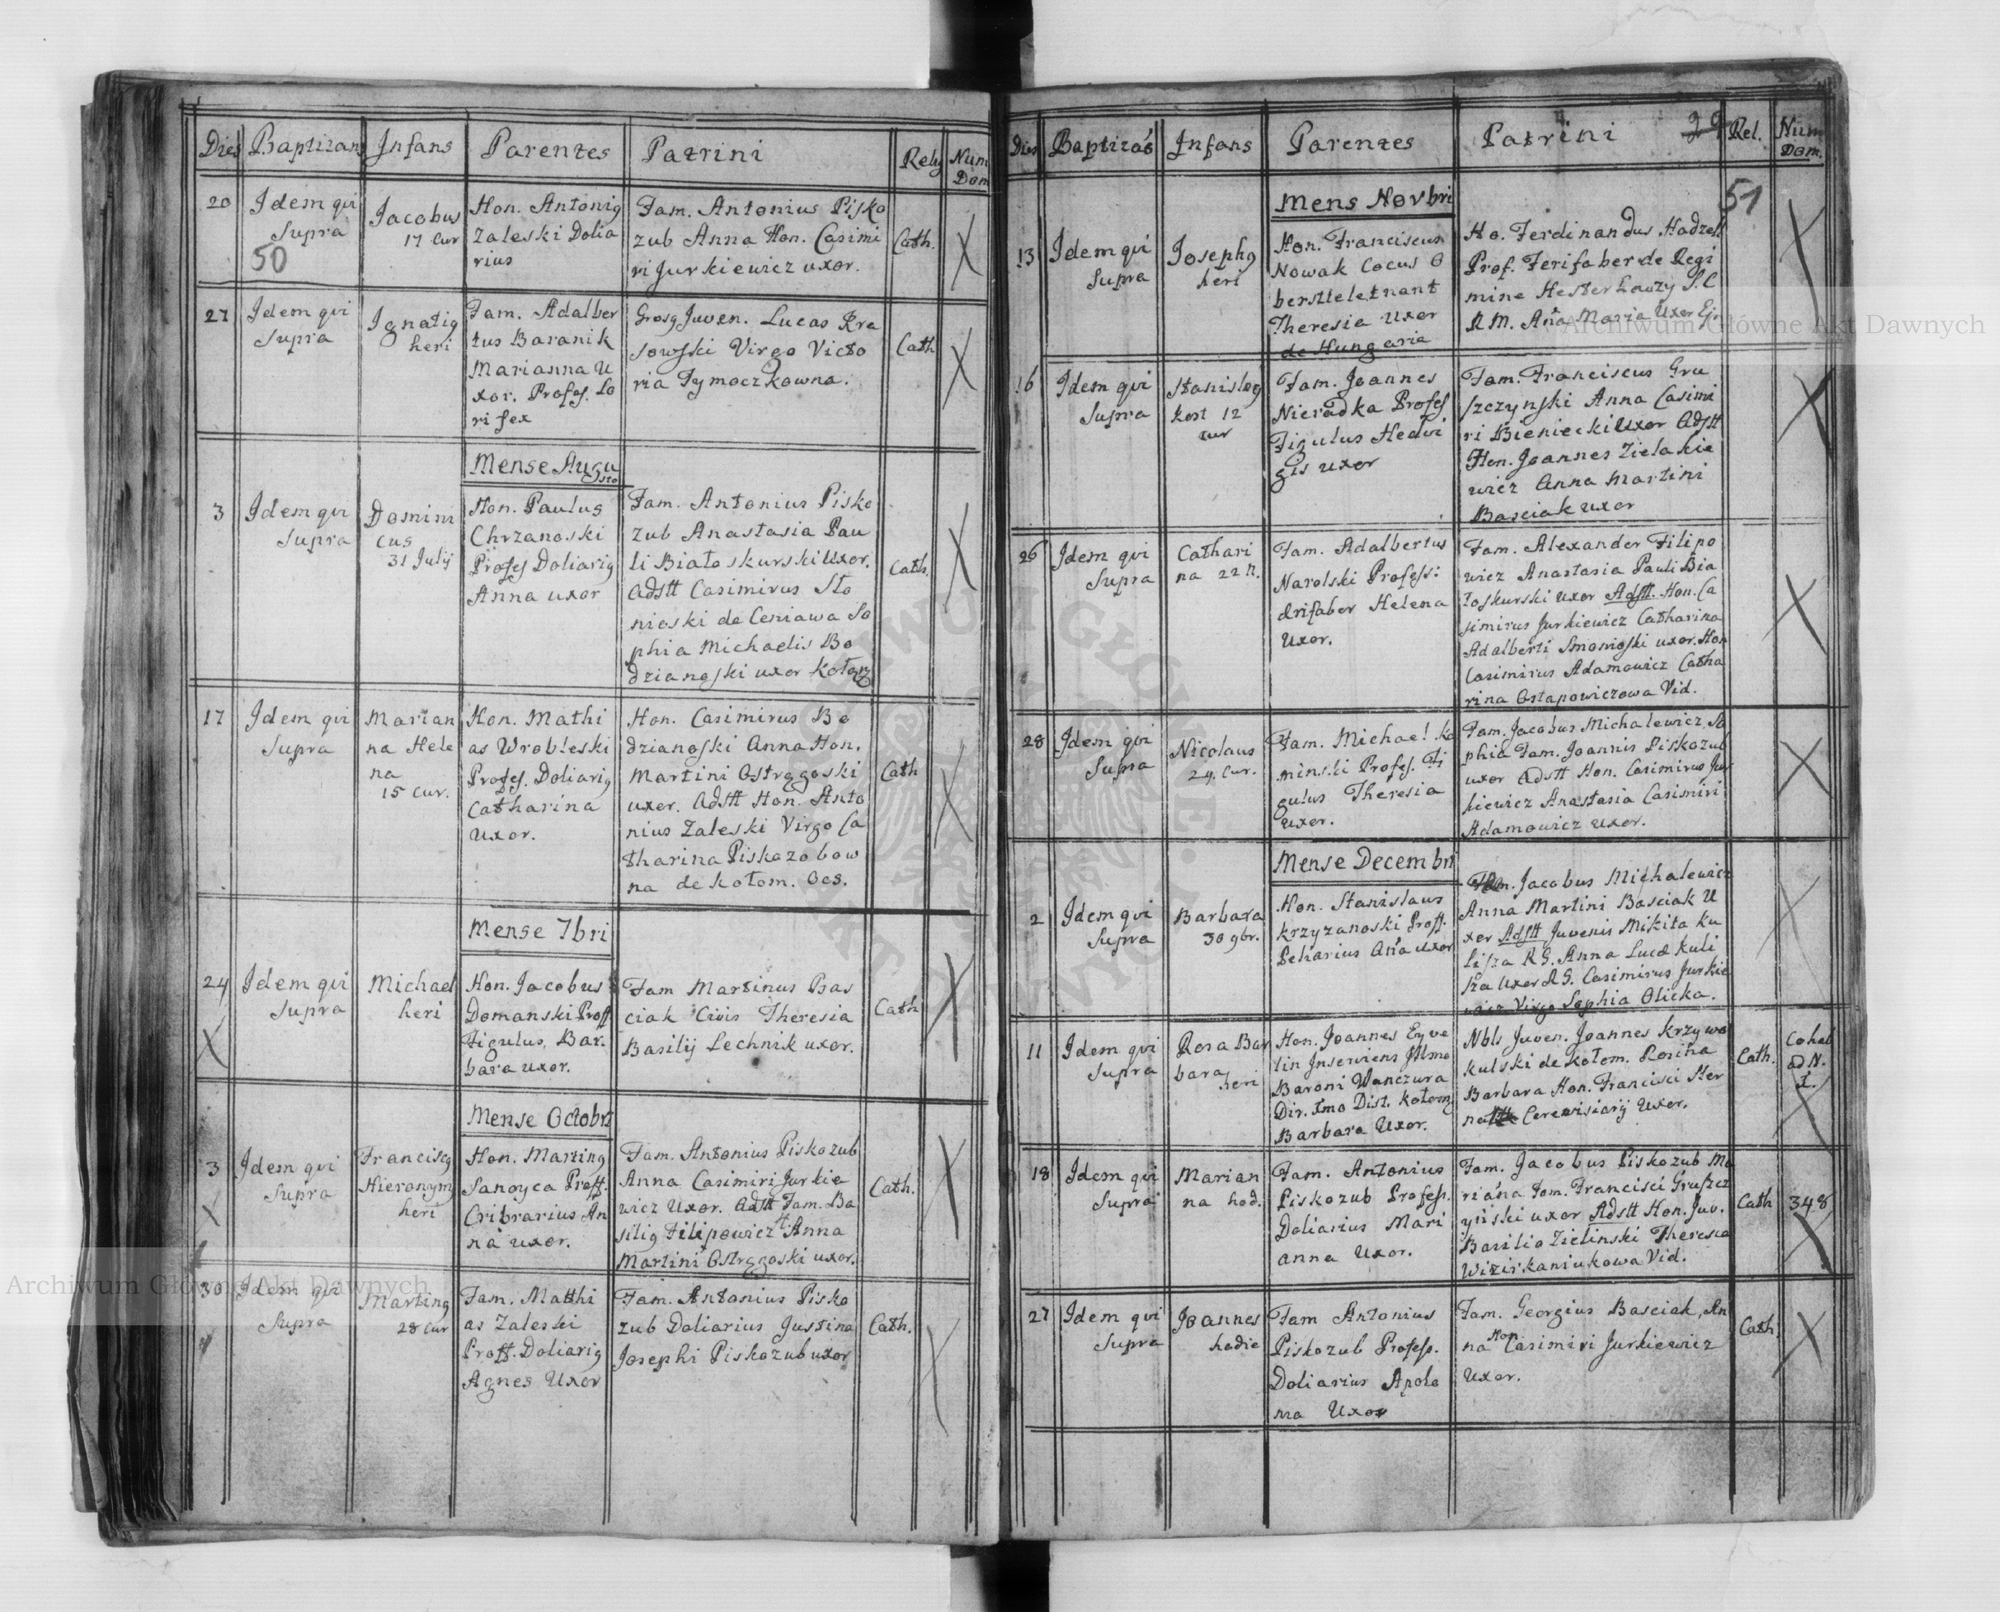 Dies Baptizans Infans Parentes Patrini Relig Num Dom
20
Idem qui
Supra
50
Jacobus
17 Cur
Hon. Antonig
Zaleski Dolia
rius
Fam. Antonius Pisko
zub Anna Hon. Casimi
ri Jurkiewicz uxor.
Cath.
27
Idem qui
Supra
Ignatig
heri
Fam. Adalber
tus Baranik
Marianna U
xor. Profes. Lo
rifex
Juven. Lucas Kra
sowski Virgo Victo
ria Tymoczkowna.
Cath
Mense Augu
sto
3
Idem qui
Supra
Domini
cus
31 Julij
Hon. Paulus
Chrzanoski
Profes Doliarig
Anna uxor
Fam. Antonius Pisko
zub Anastasia Pau
li Białoskurski Uxor.
Adstt Casimirus Sło
nioski de Ceniawa So
phia Michaelis Bo
dzianoski uxor
Cath.
17
Idem qui
Supra
Marian
na Hele
na
15 Cur.
Hon. Mathi
as Wrobleski
Profes. Doliarig
Catharina
Uxor.
Hon. Casimirus Bo
dzianoski Anna Hon.
Martini Ostrgoski
uxor. Adstt Hon. Anto
nius Zaleski Virgo Ca
tharina Piskozobow
na de Kołom. Ocs.
Cath
Mense 7bri
24
Idem qui
Supra
Michael
heri
Hon. Jacobus
Domanski Proff
Figulus, Bar.
bara uxor.
Fam Martinus Bas
ciak Civis Theresia
Basilij Lechnik uxor.
Cath
Mense Octobri
3
Idem qui
Supra
Franciscg
Hieronym
heri
Hon. Marting
Sanoyca Proff.
Cribrarius An
na uxor.
Fam. Antonius Piskozub
Anna Casimiri Jurkie
wicz Uxor. Adstt Fam. Ba
silig Filipowicz Anna
Martini Ostrgoski uxor.
Cath.
30
Idem qui
Supra
Marting
28 Cur
Fam. Matthi
as Zaleski
Proff. Doliarig
Agnes Uxor
Fam. Antonius Pisko
zub Doliarius Justina
Josephi Piskozub uxor
Cath.
Dies Baptizās Infans Parentes Patrini 29 Rel. Num Dom.
51
Mens Novbri
13
Idem qui
Supra
Josephg
heri
Hon. Franciscus
Nowak Cocus O
berstleletnant
Theresia Uxor
de Hungaria
Ho. Ferdinandus
Prof. Ferifaber de Regi
mine
R M. Aña Maria Uxor Ejs
16
Idem qui
Supra
Stanislag
Kost 12
Cur
Fam. Joannes
Nieradka Profes
Figulus Hedvi
gis uxor
Fam. Franciscus Gru
szczynski Anna Casimi
ri Bieniecki Uxor Adstt
Hon. Joannes Zielakie
wicz Anna Martini
Basciak uxor
26
Idem qui
Supra
Cathari
na 22 N.
Fam. Adalbertus
Narolski Profess:
drifaber Helena
Uxor.
Fam. Alexander Filipo
wicz Anastasia Pauli Bia
łoskurski uxor Adstt. Hon. Ca
simirus Jurkiewicz Catharina
Adalberti Smonioski uxor. Hon
Casimirus Adamowicz Catha
rina Ostapowiczowa Vid.
28
Idem qui
Supra
Nicolaus
24. Cur.
Fam. Michael Ka
minski Profes. Fi
gulus Theresia
Uxor.
Fam. Jacobus Michalewicz, So
phia Fam. Joannis Piskozub
uxor Adstt Hon. Casimirus Jur
kiewicz Anastasia Casimiri
Adamowicz uxor.
Mense Decembri
2
Idem qui
Supra
Barbara
30 9br.
Hon. Stanislaus
Krzyzanoski Proff.
Peharius Aña uxor
Fam. Jacobus Michalewicz
Anna Martini Basciak U
xor Adstt Juvenis Mikita Ku
lisza R G. Anna Lucæ Kuli
sza Uxor R G. Casimirus Jurkie
wicz Virgo Sophia Olicka.
11
Idem qui
Supra
Rosa Bar
bara
heri
Hon. Joannes Eyve
lin Inserviens Illmo
Baroni Wanczura
Dir. Imo Dist. Kołom
Barbara Uxor.
Nbls Juven. Joannes Krzywo
kulski de Kołom. Rosina
Barbara Hon. Francisci Ster
na Cerevisiarij Uxor.
Cath.
Cohab
ad N.
1.
18
Idem qui
Supra
Marian
na hod.
Fam. Antonius
Piskozub Profess.
Doliarius Mari
anna Uxor.
Fam. Jacobus Piskozub Ma
rianna Fam. Francisci Gruszcz
yński uxor Adstt Hon. Juv.
Basilio Zielinski Theresia
Wizirkaniukowa Vid.
Cath
348
27
Idem qui
Supra
Joannes
hodie
Fam Antonius
Piskozub Profess.
Doliarius Apolo
nia Uxor
Fam. Georgius Basciak, An
na Hon Casimiri Jurkiewicz
Uxor.
Cath.
Archiwum Główne Akt Dawnych
Archiwum Główne Akt Dawnych